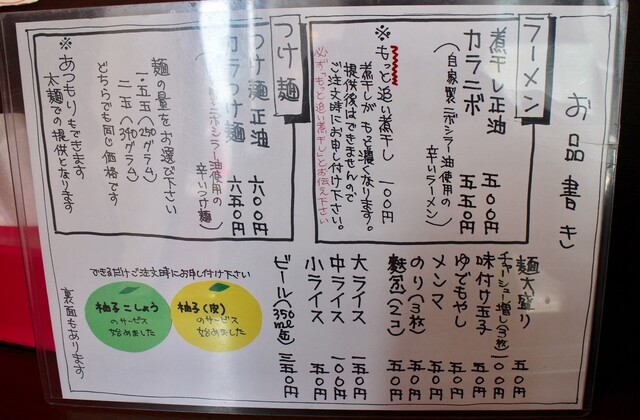 お品書き
ラーメン
煮干し正油 五〇〇円
カラニボ 五五〇円
(自家製ニボシラー油使用の
辛いラーメン)
※もっと追い煮干し 一〇〇円
煮干しがもっと濃くなります。
提供後はできませんので
ご注文時にお申し付け下さい。
必ず"もっと追い煮干し"とお伝え下さい
つけ麺
つけ麺正油 六〇〇円
カラつけ麺 六五〇円
ニボシラー油使用の
辛いつけ麺)
麺の量をお選び下さい
一.五玉(250グラム)
二玉(340グラム)
どちらでも同じ価格です
※あつもりもできます
太麺での提供となります
麺大盛り 五〇円
チャーシュー増し(3枚) 一〇〇円
味付け玉子 五〇円
ゆでもやし 五〇円
メンマ 五〇円
のり(3枚) 五〇円
(2コ) 五〇円
大ライス 一五〇円
中ライス 一〇〇円
小ライス 五〇円
ビール(350ml缶) 三五〇円
できるだけご注文時にお申し付け下さい
柚子(皮)
のサービス
始めました
柚子こしょう
のサービス
始めました
裏面もあります